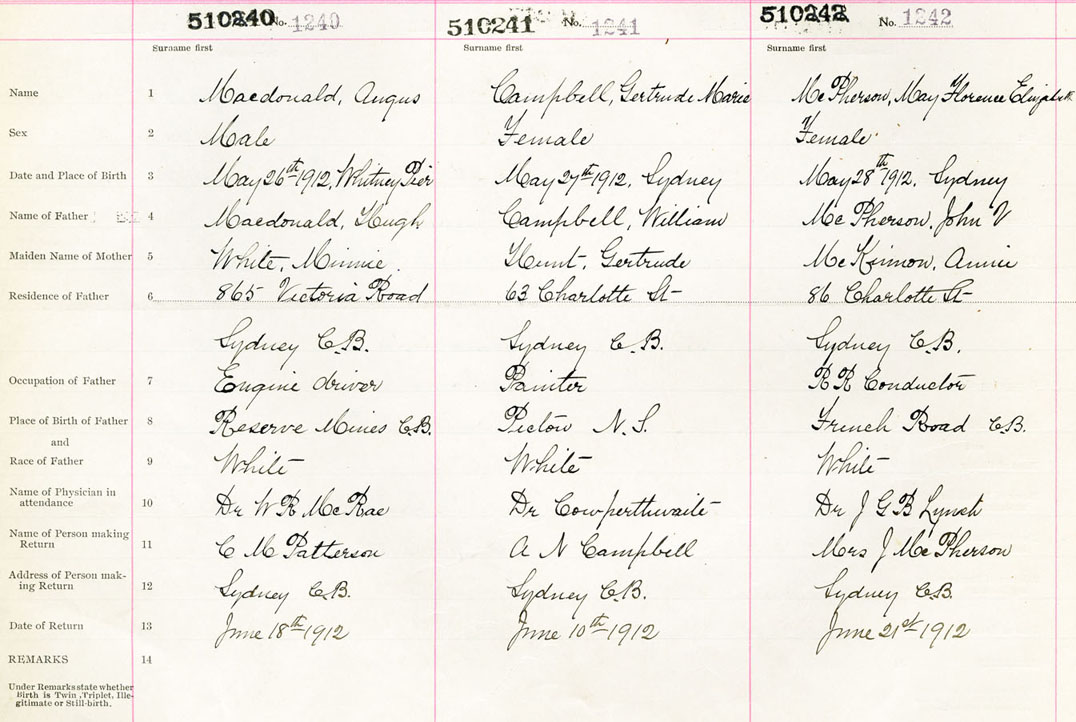 510240 No. 1240 510241 No. 1241 510242 No. 1242
Surname first Surname first Surname first
Name 1 Macdonald, Angus Campbell, Gertrude Marie McPherson, May Florence Elizabeth
Sex 2 Male Female Female
Date and Place of Birth 3 May 26th 1912, Whitney Pier May 27th 1912, Sydney May 28th 1912, Sydney
Name of Father 4 Macdonald, Hugh Campbell, William McPherson, John V
Maiden Name of Mother 5 White, Minnie. Hunt, Gertrude McKinnon, Annie
Residence of Father 6 865 Victoria Road 63 Charlotte St 86 Charlotte St
Sydney C.B. Sydney C.B. Sydney C.B.
Occupation of Father 7 Engine driver Painter R R Conductor
Place of Birth of Father 8 Reserve Mines C.B. Pictou N.S. French Road C.B.
and
Race of Father 9 White White White
Name of Physician in
attendance 10 Dr W R McRae Dr Cowperthwaite Dr J G B Lynch
Name of Person making
Return 11 C M Patterson A N Campbell Mrs J McPherson
Address of Person mak-
ing Return 12 Sydney C.B. Sydney C.B. Sydney C.B.
Date of Return 13 June 18th 1912 June 10th 1912 June 21st 1912
REMARKS 14
Under Remarks state whether
Birth is Twin, Triplet, Ille-
gitimate or Still-birth.